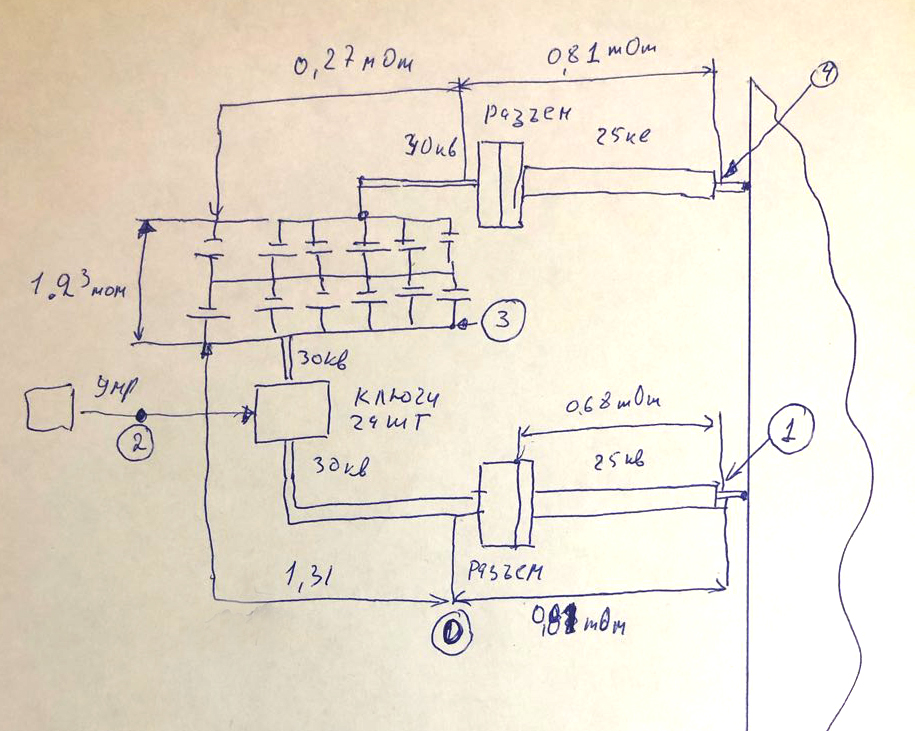 0,27 мОт
0,81 mOm
4
Разъем
30кв
25кв
1.23 мом
3
30кв
Упр
Ключи
24 шт
2
0,68 mOm
1
30кв
25кв
1,31
Разъем
0,81 mOm
0